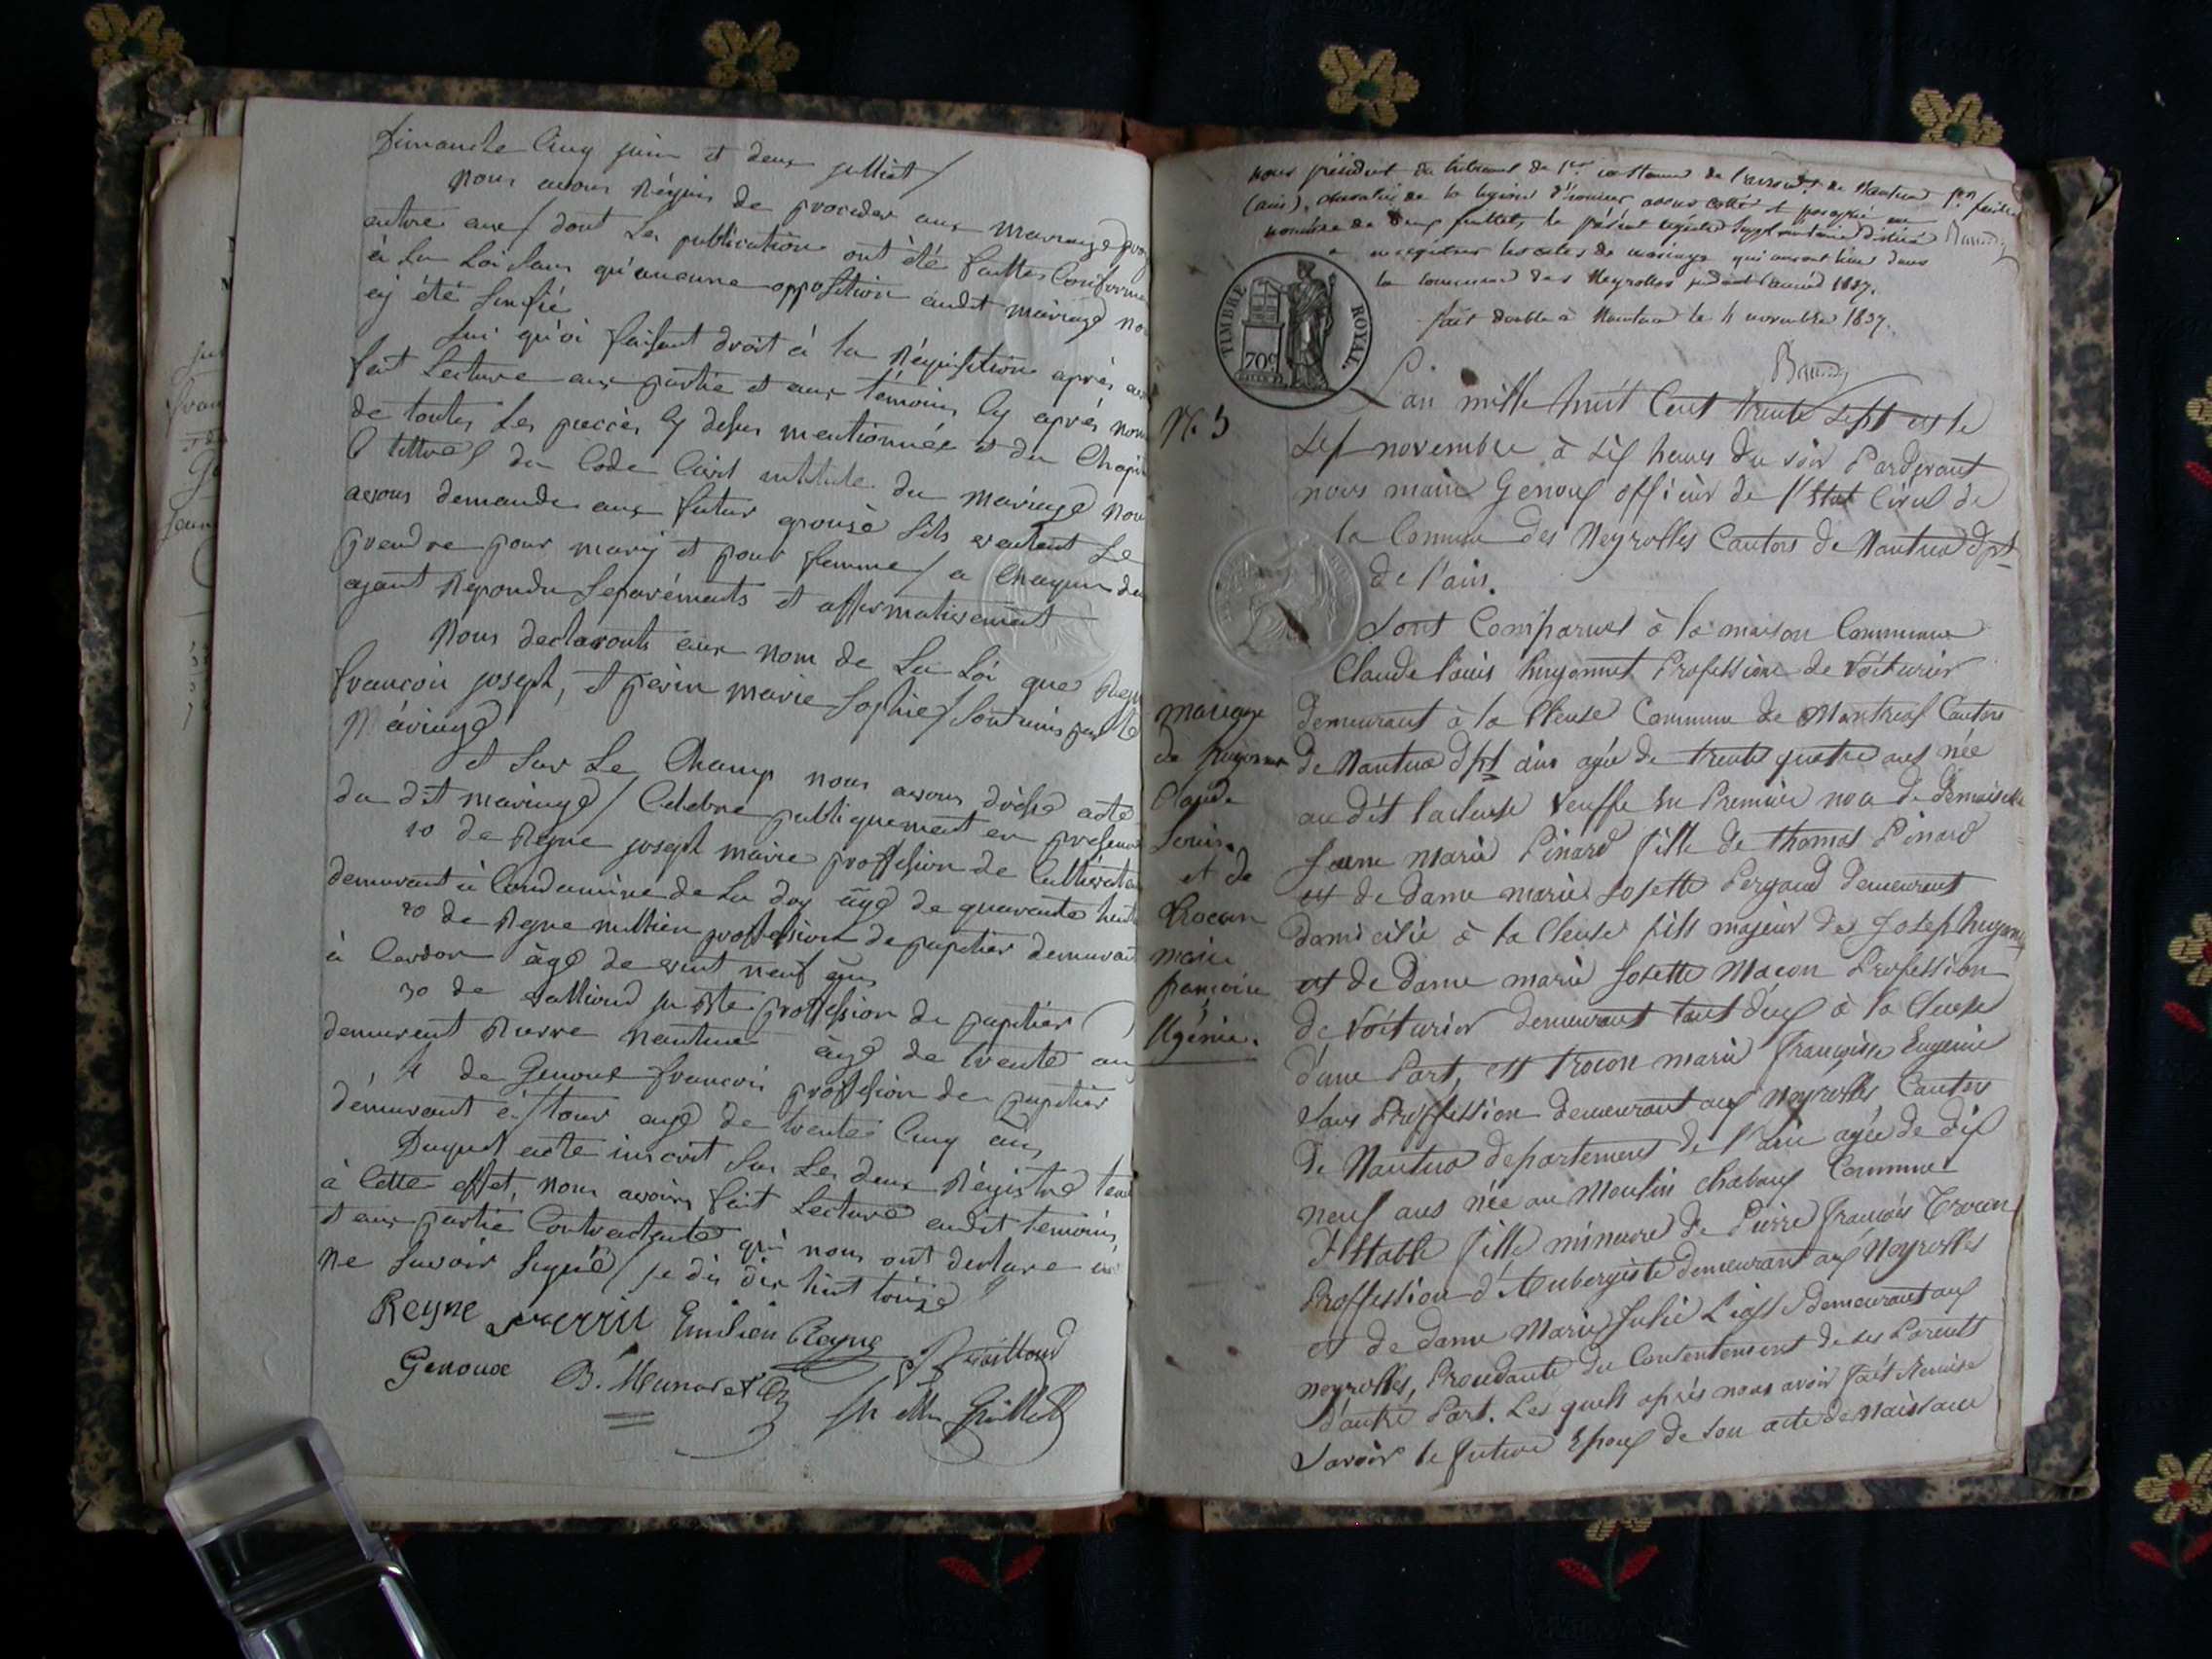 Dimanche Cinq juin et deux julliet /
nous avons Réquis de proceder aux mariage
entre eux / dont Les publications ont été faittes Conforme
à La Loi Sans qu'aucunne opposition audit mariage
ey été
Sur qu'oi faisant droit à la Réquisition après
fait Lecture aux partie et aux témoins Cy après
de toutes Les piecces Cy desus mentionnée et du
du Code Civil du mariage
avons demande aux futur epousé Sils veulent Se
prendre pour mary et pour femme / a Chaqun
ayant Repondu Separéments et affirmativement
Nous declaronts aux nom de La Loi que
francois joseph, et perin marie Sophie / Sont unis par Le
Mariage
et Sur Le Champ nous avons
du dit mariage / Celebre publiquement en
10 de Reyne joseph marie proffesion de
demurant à Condamine de La doy âgé de quarante huit
20 de Reyne proffesion de papetier
à Cerdon âgé de vint neuf ans
30 de proffesion de papetier
demurent Nantua âgé de trente
4 de Genoux francois proffesion de papetier
demurant é / tour agé de trente Cinq ans
Duquel acte inscrit Sur Les deux Régistre
à Cette effet, nous avoins fait Lecture audit temoins
et aux partie Contractante qui nous ont declare
ne Savoir Signé / je dis dix huit
Reyne perrin Emilien Reyne
Genoux
nous président du tribunal de 1re instance de l'arrondt de Nantua 1er
(ain), chevalier de la légion d'honneur avons cotté et paraphé au
nombre de deux feuillets, le présent registre supplémentaire destiné
a enregistrer les actes de mariage qui auront lieu dans
la commune des Neyrolles pendant l'année 1837.
fait double à Nantua le 4 novembre 1837.
TIMBRE ROYAL.
70c
N. 5
L'an mille huit Cent trente Sept est le
Sept novembre à Six heures du soir Pardevant
nous maire Genoux officier de l'Etat Civil de
la Comune des Neyrolles Canton de Nantua dpt
de l'ain.
Sont Comparues à la maison Commune
Claude Louis huyonnet Profession de Voiturier
mariage
de huyonnet
Claude
Louis.
et de
trocon
marie
françoise
Ugénie.
demeurant à la Cleuse Commune de Montreal Canton
de Nantua dpt ain agée de trente quatre ans née
au dit lacleuse Veuffe en Premier de
Jeanne Marie Pinard fille de thomas Pinard
et de dame marie Josette demeurant
domicilié à la Cleuse fils majeur de Joseph huyonnet
et de Dame marie Josette Macon Profession
de Voiturier demeurant tout deux à la Cleuse
d'une Part, est trocon marie françoisse Eugenie
Sans Proffession demeurant aux Neyrolles Canton
de Nantua departement de l'ain agée de dix
neuf ans née au Moulin chabaux Commune
d'Istable fille mineure de Pierre françois Trocon
Proffession d'Aubergiste demeurant aux Neyrolles
et de dame Marie Julie demeurant aux
neyrolles, Procedante du Consentement de ses Parents
d'autre Part. Les quels après nous avoir fait Remise
Savoir le future Epoux de Son acte de Naissance